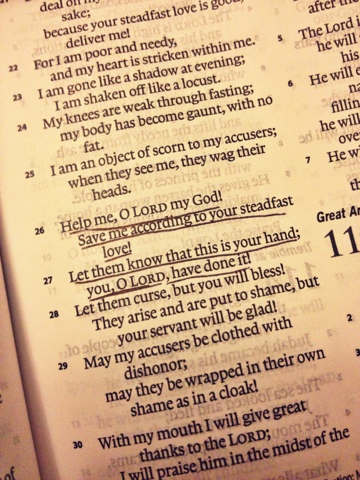 deal on my
sake;
because your steadfast love is good,
deliver me!
22 For I am poor and needy,
and my heart is stricken within me.
23 I am gone like a shadow at evening;
I am shaken off like a locust.
24 My knees are weak through fasting;
my body has become gaunt, with no
fat.
25 I am an object of scorn to my accusers;
when they see me, they wag their
heads.
26 Help me, O LORD my God!
Save me according to your steadfast
love!
27 Let them know that this is your hand;
you, O LORD, have done it!
28 Let them curse, but you will bless!
They arise and are put to shame, but
your servant will be glad!
29 May my accusers be clothed with
dishonor;
may they be wrapped in their own
shame as in a cloak!
30 With my mouth I will give great
thanks to the LORD;
I will praise him in the midst of the
of
after the
5 The Lord
he will
his
6 He will
na
fillin
he wi
ove
7 He wi
th
Great Ar
11
2
3